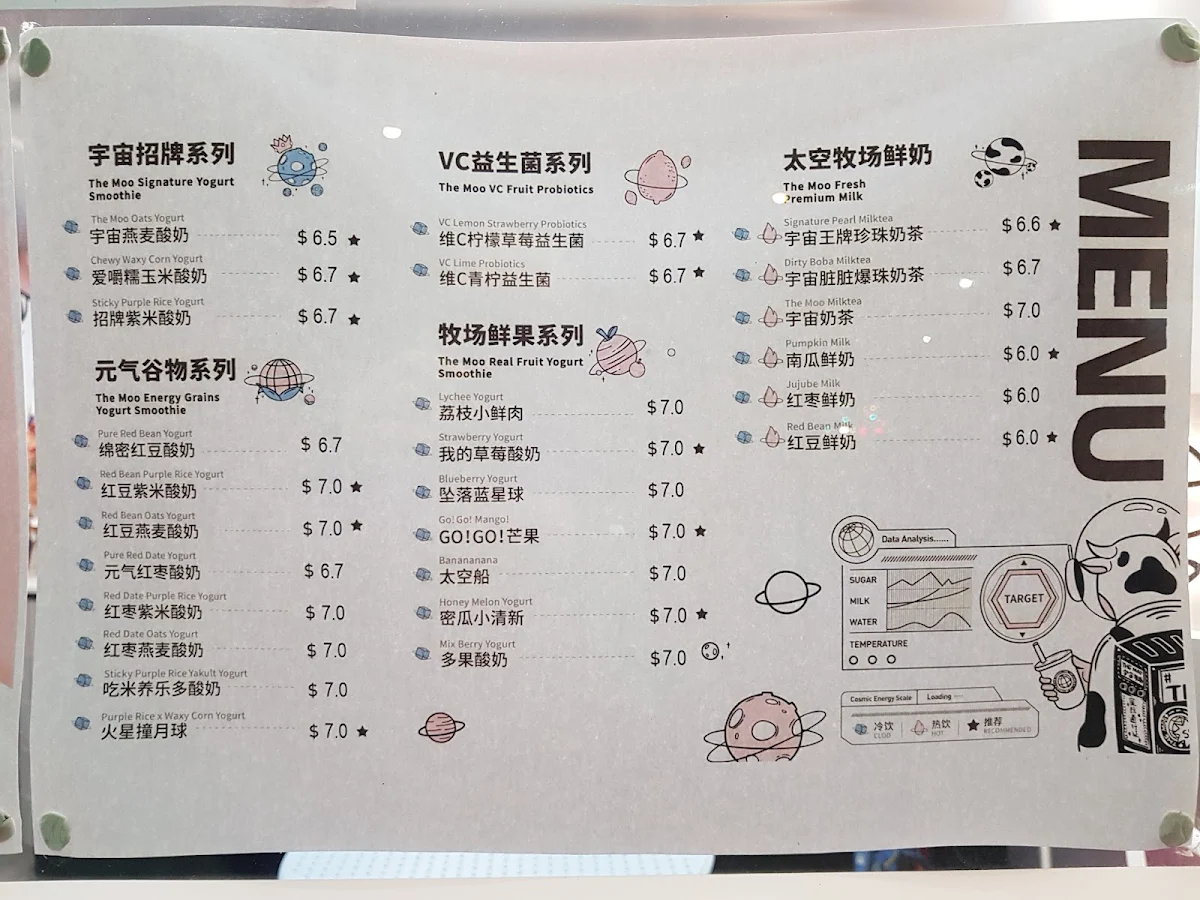 宇宙招牌系列
The Moo Signature Yogurt
Smoothie
The Moo Oats Yogurt
宇宙燕麦酸奶 $ 6.5 ★
Chewy Waxy Corn Yogurt
爱嚼糯玉米酸奶 $ 6.7 ★
Sticky Purple Rice Yogurt
招牌紫米酸奶 $ 6.7 ★
元气谷物系列
The Moo Energy Grains
Yogurt Smoothie
Pure Red Bean Yogurt
绵密红豆酸奶 $ 6.7
Red Bean Purple Rice Yogurt
红豆紫米酸奶 $ 7.0 ★
Red Bean Oats Yogurt
红豆燕麦酸奶 $ 7.0 ★
Pure Red Date Yogurt
元气红枣酸奶 $ 6.7
Red Date Purple Rice Yogurt
红枣紫米酸奶 $ 7.0
Red Date Oats Yogurt
红枣燕麦酸奶 $ 7.0
Sticky Purple Rice Yakult Yogurt
吃米养乐多酸奶 $ 7.0
Purple Rice x Waxy Corn Yogurt
火星撞月球 $ 7.0 ★
VC益生菌系列
The Moo VC Fruit Probiotics
VC Lemon Strawberry Probiotics
维C柠檬草莓益生菌 $ 6.7 ★
VC Lime Probiotics
维C青柠益生菌 $ 6.7 ★
牧场鲜果系列
The Moo Real Fruit Yogurt
Smoothie
Lychee Yogurt
荔枝小鲜肉 $ 7.0
Strawberry Yogurt
我的草莓酸奶 $ 7.0 ★
Blueberry Yogurt
坠落蓝星球 $ 7.0
Go! Go! Mango!
GO!GO!芒果 $ 7.0 ★
Banananana
太空船 $ 7.0
Honey Melon Yogurt
密瓜小清新 $ 7.0 ★
Mix Berry Yogurt
多果酸奶 $ 7.0
太空牧场鲜奶
The Moo Fresh
Premium Milk
Signature Pearl Milktea
宇宙王牌珍珠奶茶 $ 6.6 ★
Dirty Boba Milktea
宇宙脏脏爆珠奶茶 $ 6.7
The Moo Milktea
宇宙奶茶 $ 7.0
Pumpkin Milk
南瓜鲜奶 $ 6.0 ★
Jujube Milk
红枣鲜奶 $ 6.0
Red Bean Milk
红豆鲜奶 $ 6.0 ★
MENU
Data Analysis......
SUGAR
MILK
WATER
TEMPERATURE
TARGET
Cosmic Energy Scale
Loading
冷饮
CLOD
热饮
HOT
★ 推荐
RECOMMENDED